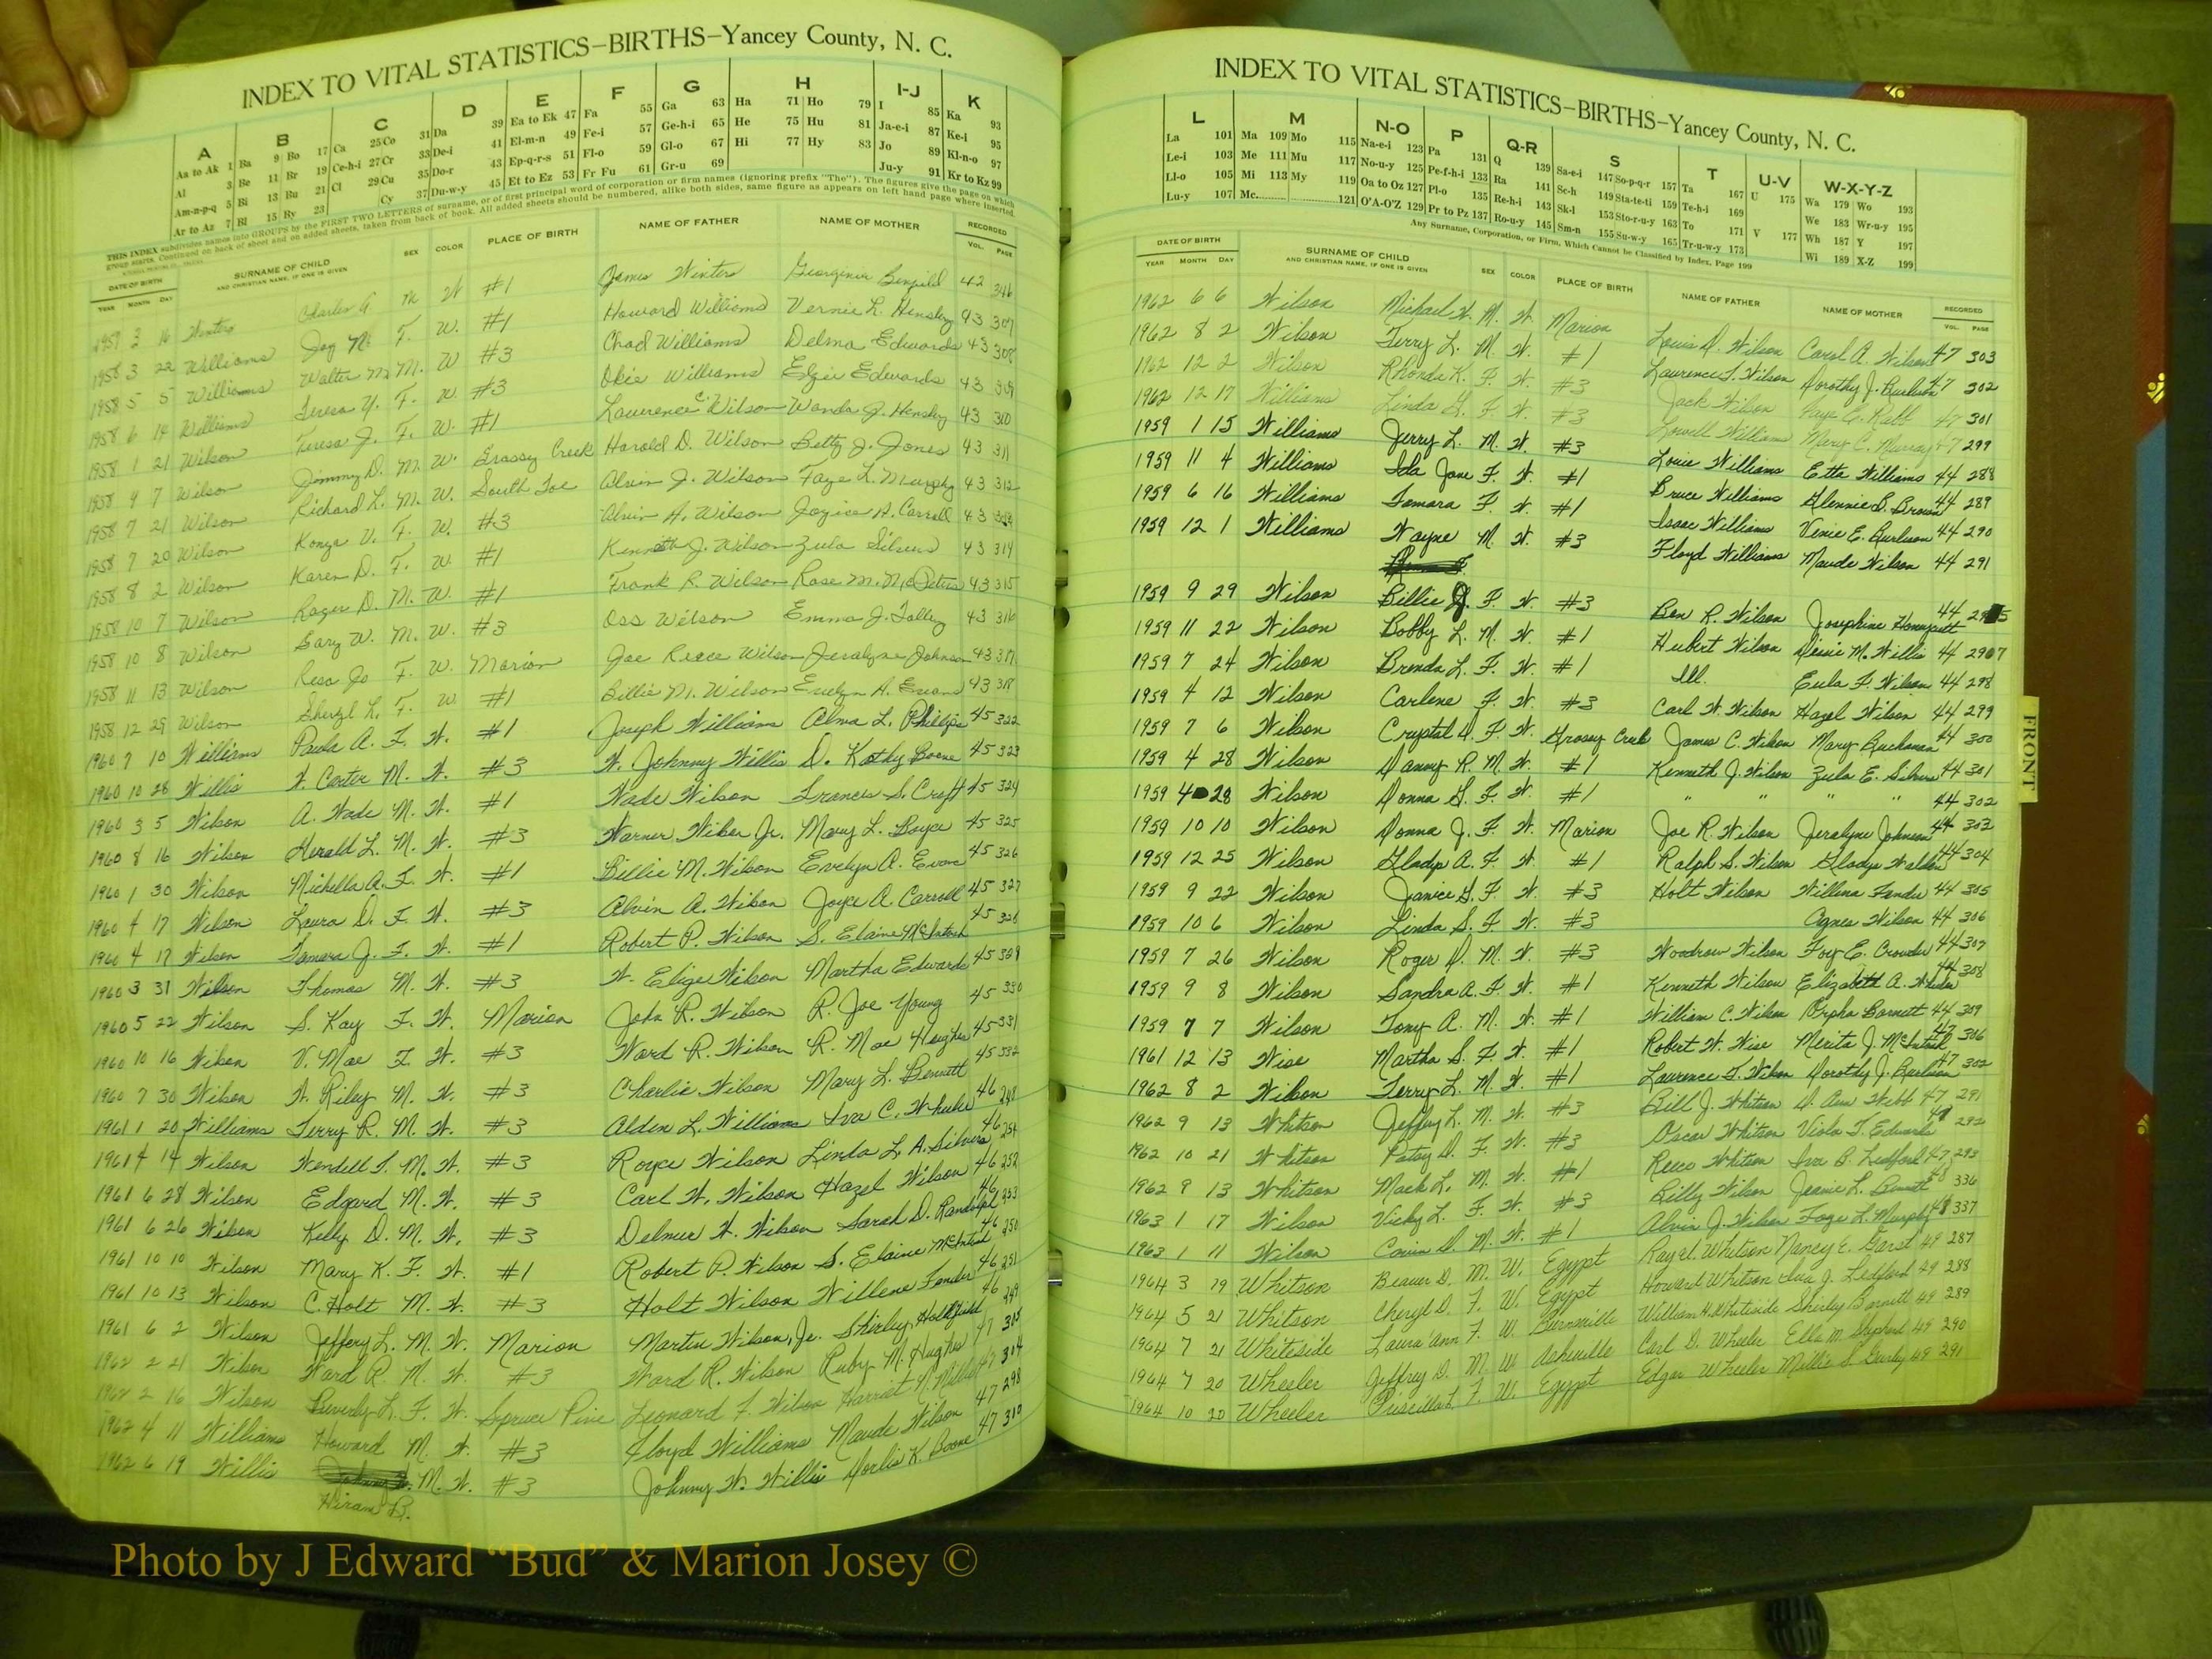 INDEX TO VITAL STATISTICS—BIRTHS—Yancey County, N. C.
A B C D E F G H I-J K
Aa to Ak 1 Ba 9 Bo 17 Ca 25 Co 31 Da 39 Ea to Ek 47 Fa 55 Ga 63 Ha 71 Ho 79 I 85 Ka 93
Al 3 Be 11 Br 19 Ce-h-i 27 Cr 33 De-i 41 El-m-n 49 Fe-i 57 Ge-h-i 65 He 75 Hu 81 Ja-e-i 87 Ke-i 95
Am-n-p-q 5 Bi 13 Bu 21 Cl 29 Cu 35 Do-r 43 Ep-q-r-s 51 Fl-o 59 Gl-o 67 Hi 77 Hy 83 Jo 89 Kl-n-o 97
Ar to Az 7 Bl 15 By 23 Cy 37 Du-w-y 45 Et to Ez 53 Fr Fu 61 Gr-u 69 Ju-y 91 Kr to Kz 99
THIS INDEX subdivides names into GROUPS by the FIRST TWO LETTERS of surname, or of first principal word of corporation or firm names (ignoring prefix "The"). The figures give the page on which
group starts. Continued on back of sheet and on added sheets, taken from back of book. All added sheets should be numbered, alike both sides, same figure as appears on left hand page where inserted.
DATE OF BIRTH SURNAME OF CHILD SEX COLOR PLACE OF BIRTH NAME OF FATHER NAME OF MOTHER RECORDED
YEAR MONTH DAY AND CHRISTIAN NAME, IF ONE IS GIVEN VOL. PAGE
1957 3 16 Winters Charles A. M W #1 James Winters Georginia 42 346
1958 3 22 Williams Joy F. W. #1 Howard Williams Vernie L. Hensley 43 307
1958 5 5 Williams Walter M. M. W #3 Chad Williams Delma Edwards 43 308
1958 6 14 Williams Teresa Y. F. W. #3 Obie Williams Elzie Edwards 43 309
1958 1 21 Wilson Teresa J. F. W. #1 Lawrence C. Wilson Wanda J. Hensley 43 310
1958 9 7 Wilson Jimmy D. M. W. Grassy Creek Harold D. Wilson Betty J. Jones 43 311
1958 7 21 Wilson Richard L. M. W. South Toe Alvin J. Wilson Faye L. Murphy 43 312
1958 7 20 Wilson Konya V. F. W. #3 Alvin A. Wilson Joyice A. Carroll 43
1958 8 2 Wilson Karen D. F. W #1 Kenneth J. Wilson Zula Silvers 43 314
1958 10 7 Wilson Roger D. M. W. #1 Frank R. Wilson Rose M. McPeters 43 315
1958 10 8 Wilson Gary W. M. W. #3 Oss Wilson Emma J. Tolley 43 316
1958 11 13 Wilson Resa Jo F. W. Marion Joe Reece Wilson Jeralyne Johnson 43 317
1958 12 29 Wilson Sheryl L. F. W #1 Billie M. Wilson Evelyn A. Evans 43 318
1960 7 10 Williams Paula A. F. W. #1 Joseph Williams Alma L. Phillips 45 322
1960 10 28 Willis W. Carter M. W. #3 W. Johnny Willis D. Kathy Boone 45 323
1960 3 5 Wilson A. Wade M. W. #1 Wade Wilson Frances S. Croft 45 324
1960 8 16 Wilson Herald L. M. W. #3 Warner Wilson Jr. Mary L. Boyce 45 325
1960 1 30 Wilson Michella A. F. W. #1 Billie M. Wilson Evelyn A. Evans 45 326
1960 4 17 Wilson Laura D. F. W. #3 Alvin A. Wilson Joyce A. Carroll 45 327
1960 4 17 Wilson Tamara J. F. W. #1 Robert P. Wilson S. Elaine McIntosh 45 328
1960 3 31 Wilson Thomas M. W. #3 W. Elige Wilson Martha Edwards 45 329
1960 5 22 Wilson S. Kay F. W. Marion John R. Wilson R. Joe Young 45 330
1960 10 16 Wilson V. Mae F. W. #3 Ward R. Wilson R. Mae Hughes 45 331
1960 7 30 Wilson W. Riley M. W. #3 Charlie Wilson Mary L. Bennett 45 332
1961 1 20 Williams Terry R. M. W. #3 Alden L. Williams Iva C. Wheeler 46 248
1961 4 14 Wilson Wendell T. M. W. #3 Royce Wilson Linda L. A. Silvers 46 254
1961 6 28 Wilson Edgard M. W. #3 Carl W. Wilson Hazel Wilson 46 252
1961 6 26 Wilson Kelly D. M. W. #3 Delmer W. Wilson Sarah D. Randolph 46 253
1961 10 10 Wilson Mary K. F. W. #1 Robert P. Wilson S. Elaine McIntosh 46 250
1961 10 13 Wilson C. Holt M. W. #3 Holt Wilson Willene Fender 46 251
1961 6 2 Wilson Jeffery L. M. W. Marion Martin Wilson, Jr. Shirley Hollifield 46 249
1962 2 21 Wilson Ward R. M. W. #3 Ward R. Wilson Ruby M. Hughes 47
1962 2 16 Wilson Beverly L. F. W. Spruce Pine Leonard F. Wilson Harriet N. 47 304
1962 4 11 Williams Howard M. W. #3 Floyd Williams Maude Wilson 47 298
1962 6 19 Willis M. W. #3 Johnny W. Willis Dorlis K. Boone 47 310
Hiram B.
INDEX TO VITAL STATISTICS—BIRTHS—Yancey County, N. C.
L M N-O P Q-R S T U-V W-X-Y-Z
La 101 Ma 109 Mo 115 Na-e-i 123 Pa 131 Q 139 Sa-e-i 147 So-p-q-r 157 Ta 167 U 175 Wa 179 Wo 193
Le-i 103 Me 111 Mu 117 No-u-y 125 Pe-f-h-i 133 Ra 141 Sc-h 149 Sta-te-ti 159 Te-h-i 169 We 183 Wr-u-y 195
Ll-o 105 Mi 113 My 119 Oa to Oz 127 Pl-o 135 Re-h-i 143 Sk-l 153 Sto-r-u-y 163 To 171 V 177 Wh 187 Y 197
Lu-y 107 Mc 121 O'A-O'Z 129 Pr to Pz 137 Ro-u-y 145 Sm-n 155 Su-w-y 165 Tr-u-w-y 173 Wi 189 X-Z 199
Any Surname, Corporation, or Firm, Which Cannot be Classified by Index, Page 199
DATE OF BIRTH SURNAME OF CHILD SEX COLOR PLACE OF BIRTH NAME OF FATHER NAME OF MOTHER RECORDED
YEAR MONTH DAY AND CHRISTIAN NAME, IF ONE IS GIVEN VOL. PAGE
1962 6 6 Wilson Michael W. M. W. Marion Louis D. Wilson Carol A. Wilson 47 303
1962 8 2 Wilson Terry L. M. W. #1 Laurence T. Wilson Dorothy J. Burleson 47 302
1962 12 2 Wilson Rhonda K. F. W. #3 Jack Wilson Faye E. Rabb 47 301
1962 12 17 Williams Linda G. F. W. #3 Lowell Williams Mary C. Murray 47 299
1959 1 15 Williams Jerry L. M. W. #3 Louie Williams Etta Williams 44 288
1959 11 4 Williams Ida Jane F. W. #1 Bruce Williams Glennie B. Brown 44 289
1959 6 16 Williams Tamara F. W. #1 Isaac Williams Venie E. Burleson 44 290
1959 12 1 Williams Wayne M. W. #3 Floyd Williams Maude Wilson 44 291
1959 9 29 Wilson Billie J. F. W. #3 Ben R. Wilson Josephine Honeycutt 44 295
1959 11 22 Wilson Bobby L. M. W. #1 Hubert Wilson Dessie M. Willis 44 297
1959 7 24 Wilson Brenda L. F. W. #1 Ill. Eula F. Wilson 44 298
1959 4 12 Wilson Carlene F. W. #3 Carl W. Wilson Hazel Wilson 44 299
1959 7 6 Wilson Crystal D. F. W. Grassy Creek James C. Wilson Mary Buchanan 44 300
1959 4 28 Wilson Danny R. M. W. #1 Kenneth J. Wilson Zula E. Silvers 44 301
1959 4 28 Wilson Donna G. F. W. #1 " " " " 44 302
1959 10 10 Wilson Donna J. F. W. Marion Joe R. Wilson Jeralyne Johnson 44 303
1959 12 25 Wilson Gladys A. F. W. #1 Ralph S. Wilson Gladys Walden 44 304
1959 9 22 Wilson Janice G. F. W. #3 Holt Wilson Willena Fender 44 305
1959 10 6 Wilson Linda S. F. W. #3 Agnes Wilson 44 306
1959 7 26 Wilson Roger D. M. W. #3 Woodrow Wilson Foy E. Crowder 44 307
1959 9 8 Wilson Sandra A. F. W. #1 Kenneth Wilson Elizabeth A. Wheeler 44 308
1959 7 7 Wilson Tony A. M. W. #1 William C. Wilson Orpha Barnett 44 309
1961 12 13 Wise Martha S. F. W. #1 Robert W. Wise Merita J. McIntosh 47 306
1962 8 2 Wilson Terry L. M. W. #1 Laurence T. Wilson Dorothy J. Burleson 47 302
1962 9 13 Whitson Jeffrey K. M. W. #3 Bill J. Whitson D. Ann Webb 47 291
1962 10 21 Whitson Patsy D. F. W. #3 Oscar Whitson Viola T. Edwards 292
1962 9 13 Whitson Mack L. M. W. #1 Reece Whitson Iva B. Ledford 47 293
1963 1 17 Wilson Vicky L. F. W. #3 Billy Wilson Jeanie L. Bennett 48 336
1963 1 11 Wilson M. W. #1 Alvin J. Wilson Faye L. Murphy 48 337
1964 3 19 Whitson Beaver D. M. W. Egypt Ray d. Whitson Nancy E. Garst 49 287
1964 5 21 Whitson Cheryl D. F. W. Egypt Howard Whitson Iva J. Ledford 49 288
1964 7 21 Whiteside Laura Ann F. W. Burnsville William H. Whiteside Shirley Barnett 49 289
1964 7 20 Wheeler Jeffrey D. M. W. Asheville Carl D. Wheeler Ella M. Shepherd 49 290
1964 10 20 Wheeler Priscilla L. F. W. Egypt Edgar Wheeler Millie S. Gurley 49 291
FRONT
Photo by J Edward “Bud” & Marion Josey ©